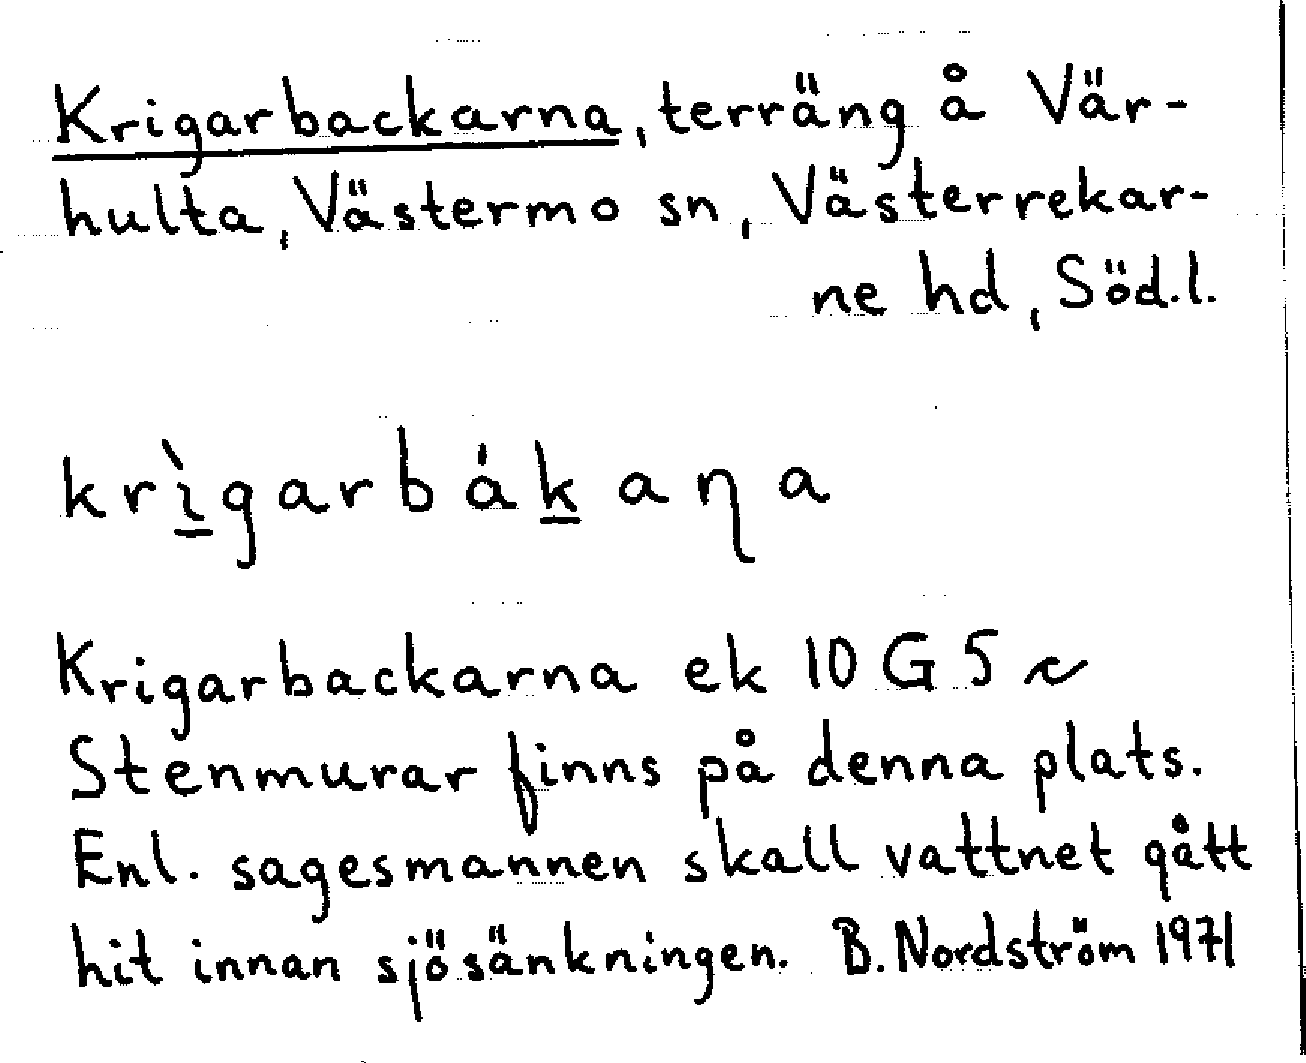 Krigarbackarna, terräng å Vär-
hulta, Västermo sn, Västerrekar-
ne hd, Söd.l.
krı̱̀garbáḵaɳa
Krigarbackarna ek 10 G 5 c
Stenmurar finns på denna plats.
Enl. sagesmannen skall vattnet gått
hit innan sjösänkningen. B. Nordström 1971